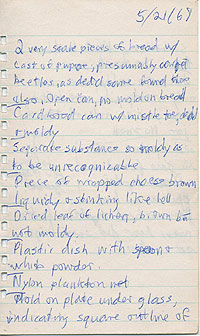 5/21/69
2 very stale pieces of bread w/
cast of pupae, presumably carpet
beetles, as dead some found
also, Open can, no mold on bread
Cardboard can w/ mistletoe, dead
& moldy
Separate substance so moldy as
to be unrecognicable
Piece of wrapped cheese brown
liquidy & stinking like hell
Dried leaf of lichen, brown but
not moldy.
Plastic dish with spoon &
white powder.
Nylon plankton net
Mold on plate under glass,
indicating square outline of